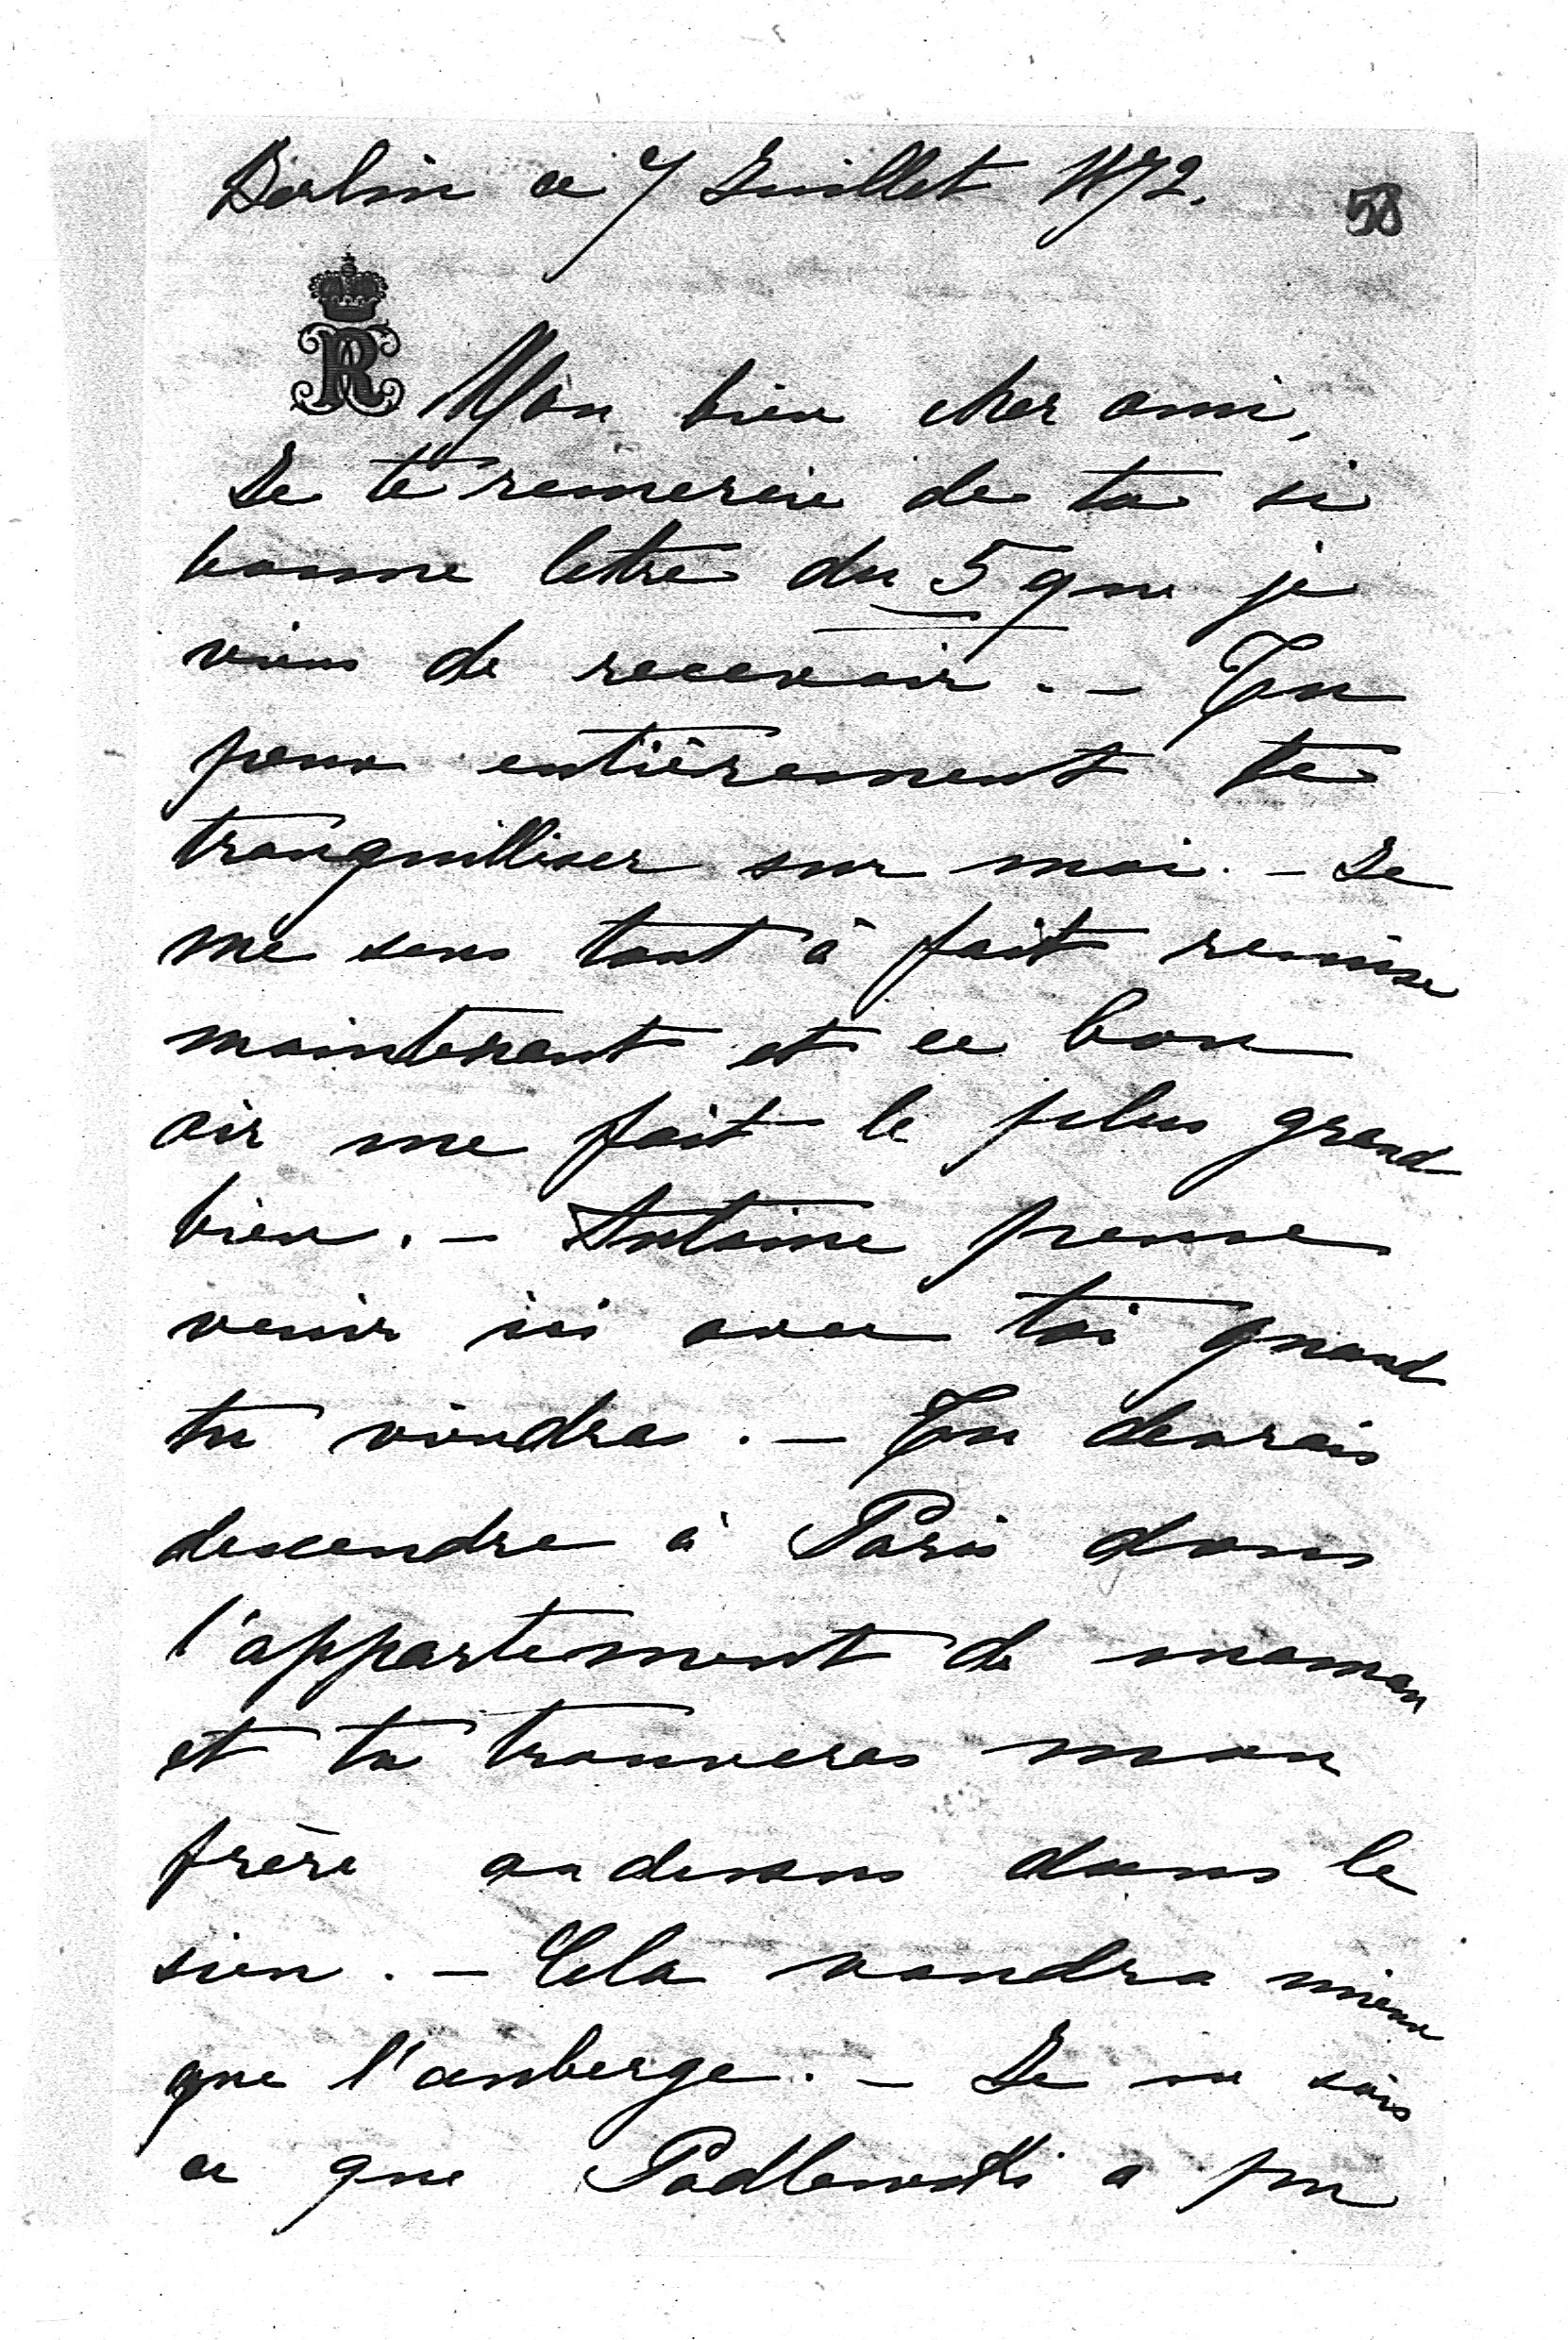 Berlin ce 7 Juillet 1872.
58
R
Mon bien cher ami,
Je te remercie de ta si
bonne lettre du 5 que je
viens de recevoir. – Tu
peux entièrement te
tranquilliser sur moi. – Je
me sens tout à fait remise
maintenant et ce bon
air me fait le plus grand
bien. – Antoine pense
venir ici avec toi quand
tu viendras. – Tu devrais
descendre à Paris dans
l'appartement de maman
et tu trouveras mon
frère au dessous dans le
sien. – Cela vaudra mieux
que l'auberge. – Je ne sais
ce que Podlewski a pu